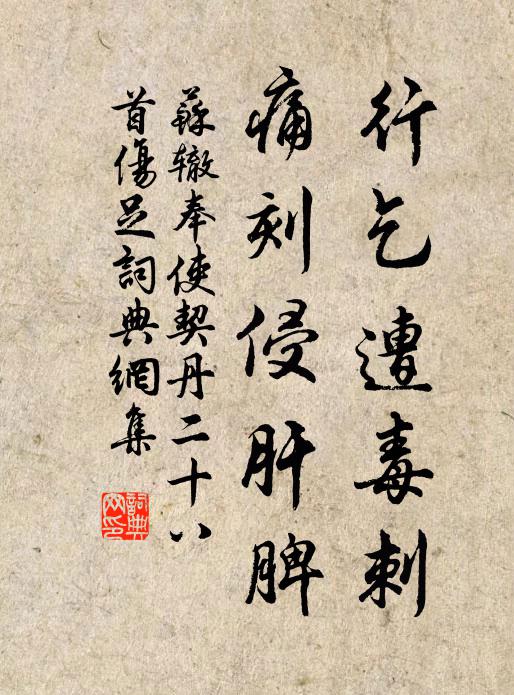 行乞遭毒刺
痛刻侵肝脾
蘇轍奉使契丹二十八
首傷足詞典網集
詞典網印